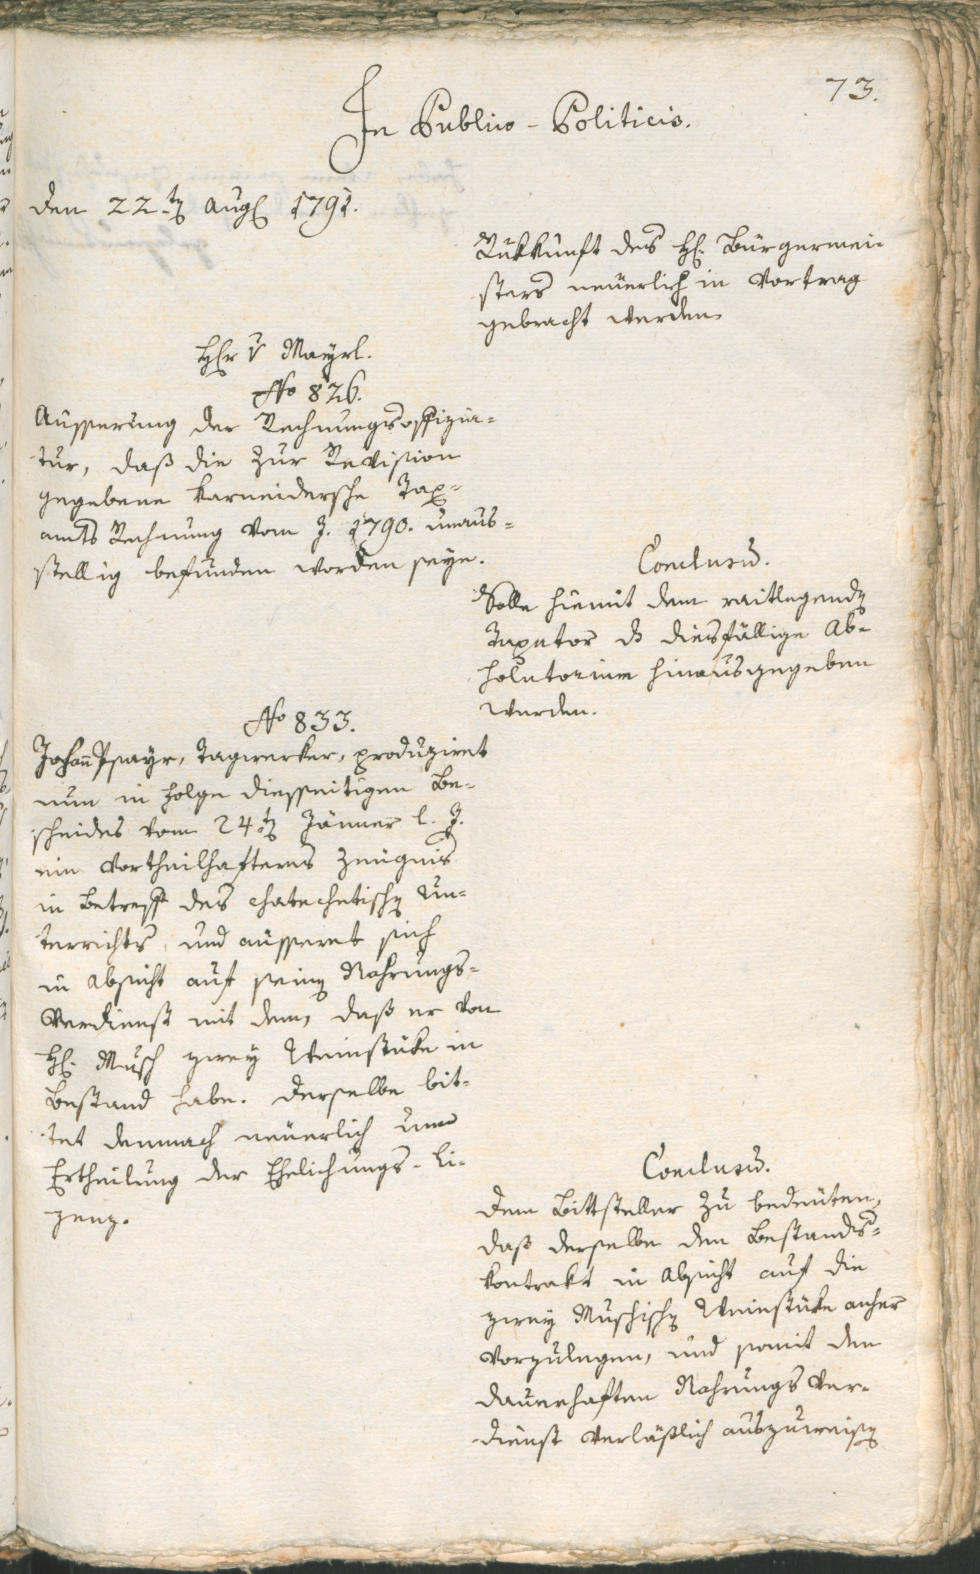 73.
In Publico-Politicis.
den 22ten Aug. 1791.
Rukkunft des H. Bürgermei=
sters neüerlich in Vortrag
gebracht werden
Hr v Mayrl.
No 826.
Äusserung der Rechnungsoffizia=
tur, daß die zur Revision
gegebene karneidersche Tax=
amts Rechnung vom J. 1790. unaus=
stellig befunden worden seye.
Conclusum.
Solle hiemit dem raitlegenden
Taxator das diesfällige Ab=
solutorium hinausgegeben
werden.
No 833.
Johann Psayr, Tagwerker, produziret
nun in Folge diesseitigen Be=
scheides vom 24ten Jänner l. J.
ein vortheilhafteres Zeugnis
in Betreff des chatechetischen Un=
terrichts, und äusseret sich
in Absicht auf seinen Nahrungs=
Verdienst mit dem, daß er von
H. Musch zwey Weinstüke in
Bestand habe. Derselbe bit=
tet demnach neüerlich um
Ertheilung der Ehelichungs-Li=
zenz.
Conclusum.
Dem Bittsteller zu bedeuten,
daß derselbe den Bestands=
kontrakt in Absicht auf die
zwey Muschischen Weinstüke anher
vorzulegen, und somit den
dauerhaften Nahrungs Ver=
dienst verläßlich auszuweisen